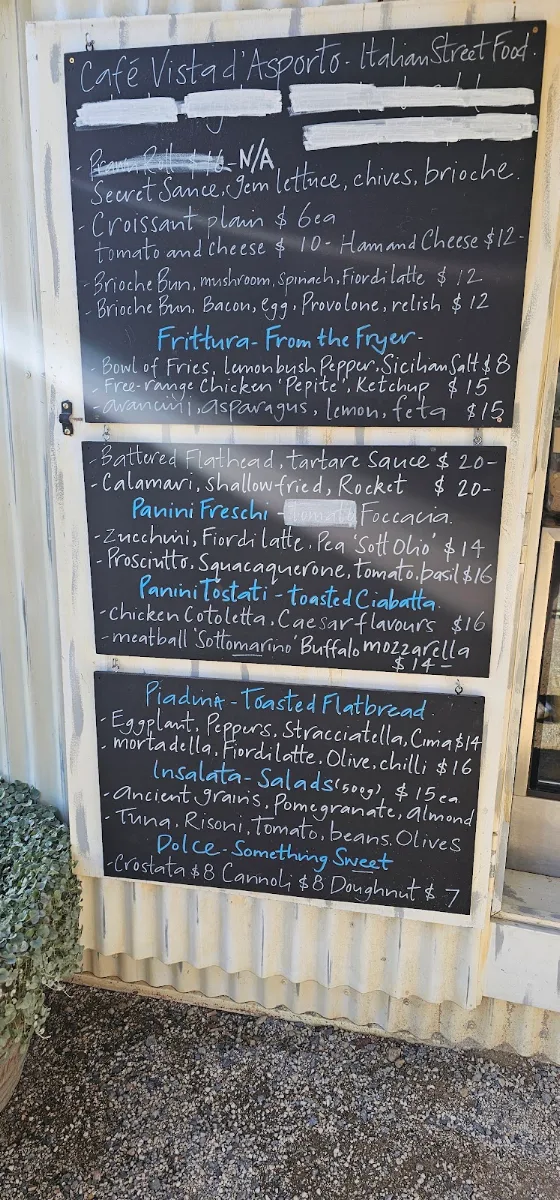 Café Vista d'Asporto - Italian Street Food.
- N/A
Secret Sauce, gem lettuce, chives, brioche.
- Croissant plain $ 6ea
tomato and cheese $ 10- Ham and Cheese $12-
- Brioche Bun, mushroom, spinach, Fiordilatte $ 12
- Brioche Bun, Bacon, egg, Provolone, relish $ 12
Frittura - From the Fryer -
- Bowl of Fries, lemonbush Pepper, Sicilian Salt $ 8
- Free-range Chicken 'Pepite', Ketchup $ 15
- arancini, asparagus, lemon, feta $15
- Battered Flathead, tartare Sauce $ 20-
- Calamari, shallow-fried, Rocket $ 20-
Panini Freschi - Foccacia.
- Zucchini, Fiordilatte, Pea 'Sott Olio' $ 14
- Prosciutto, Squacaquerone, tomato, basil $16
Panini Tostati - toasted Ciabatta.
- chicken Cotoletta, Caesar flavours $16
- meatball 'Sottomarino' Buffalo mozzarella
$ 14 -
Piadina - Toasted Flatbread.
- Eggplant, Peppers, Stracciatella, Cima $14
- mortadella, Fiordilatte, Olive, chilli $ 16
Insalata - Salads (500g) $ 15 ea
- Ancient grains, Pomegranate, almond
- Tuna, Risoni, Tomato, beans, Olives
Dolce - Something Sweet
- Crostata $8 Cannoli $8 Doughnut $ 7